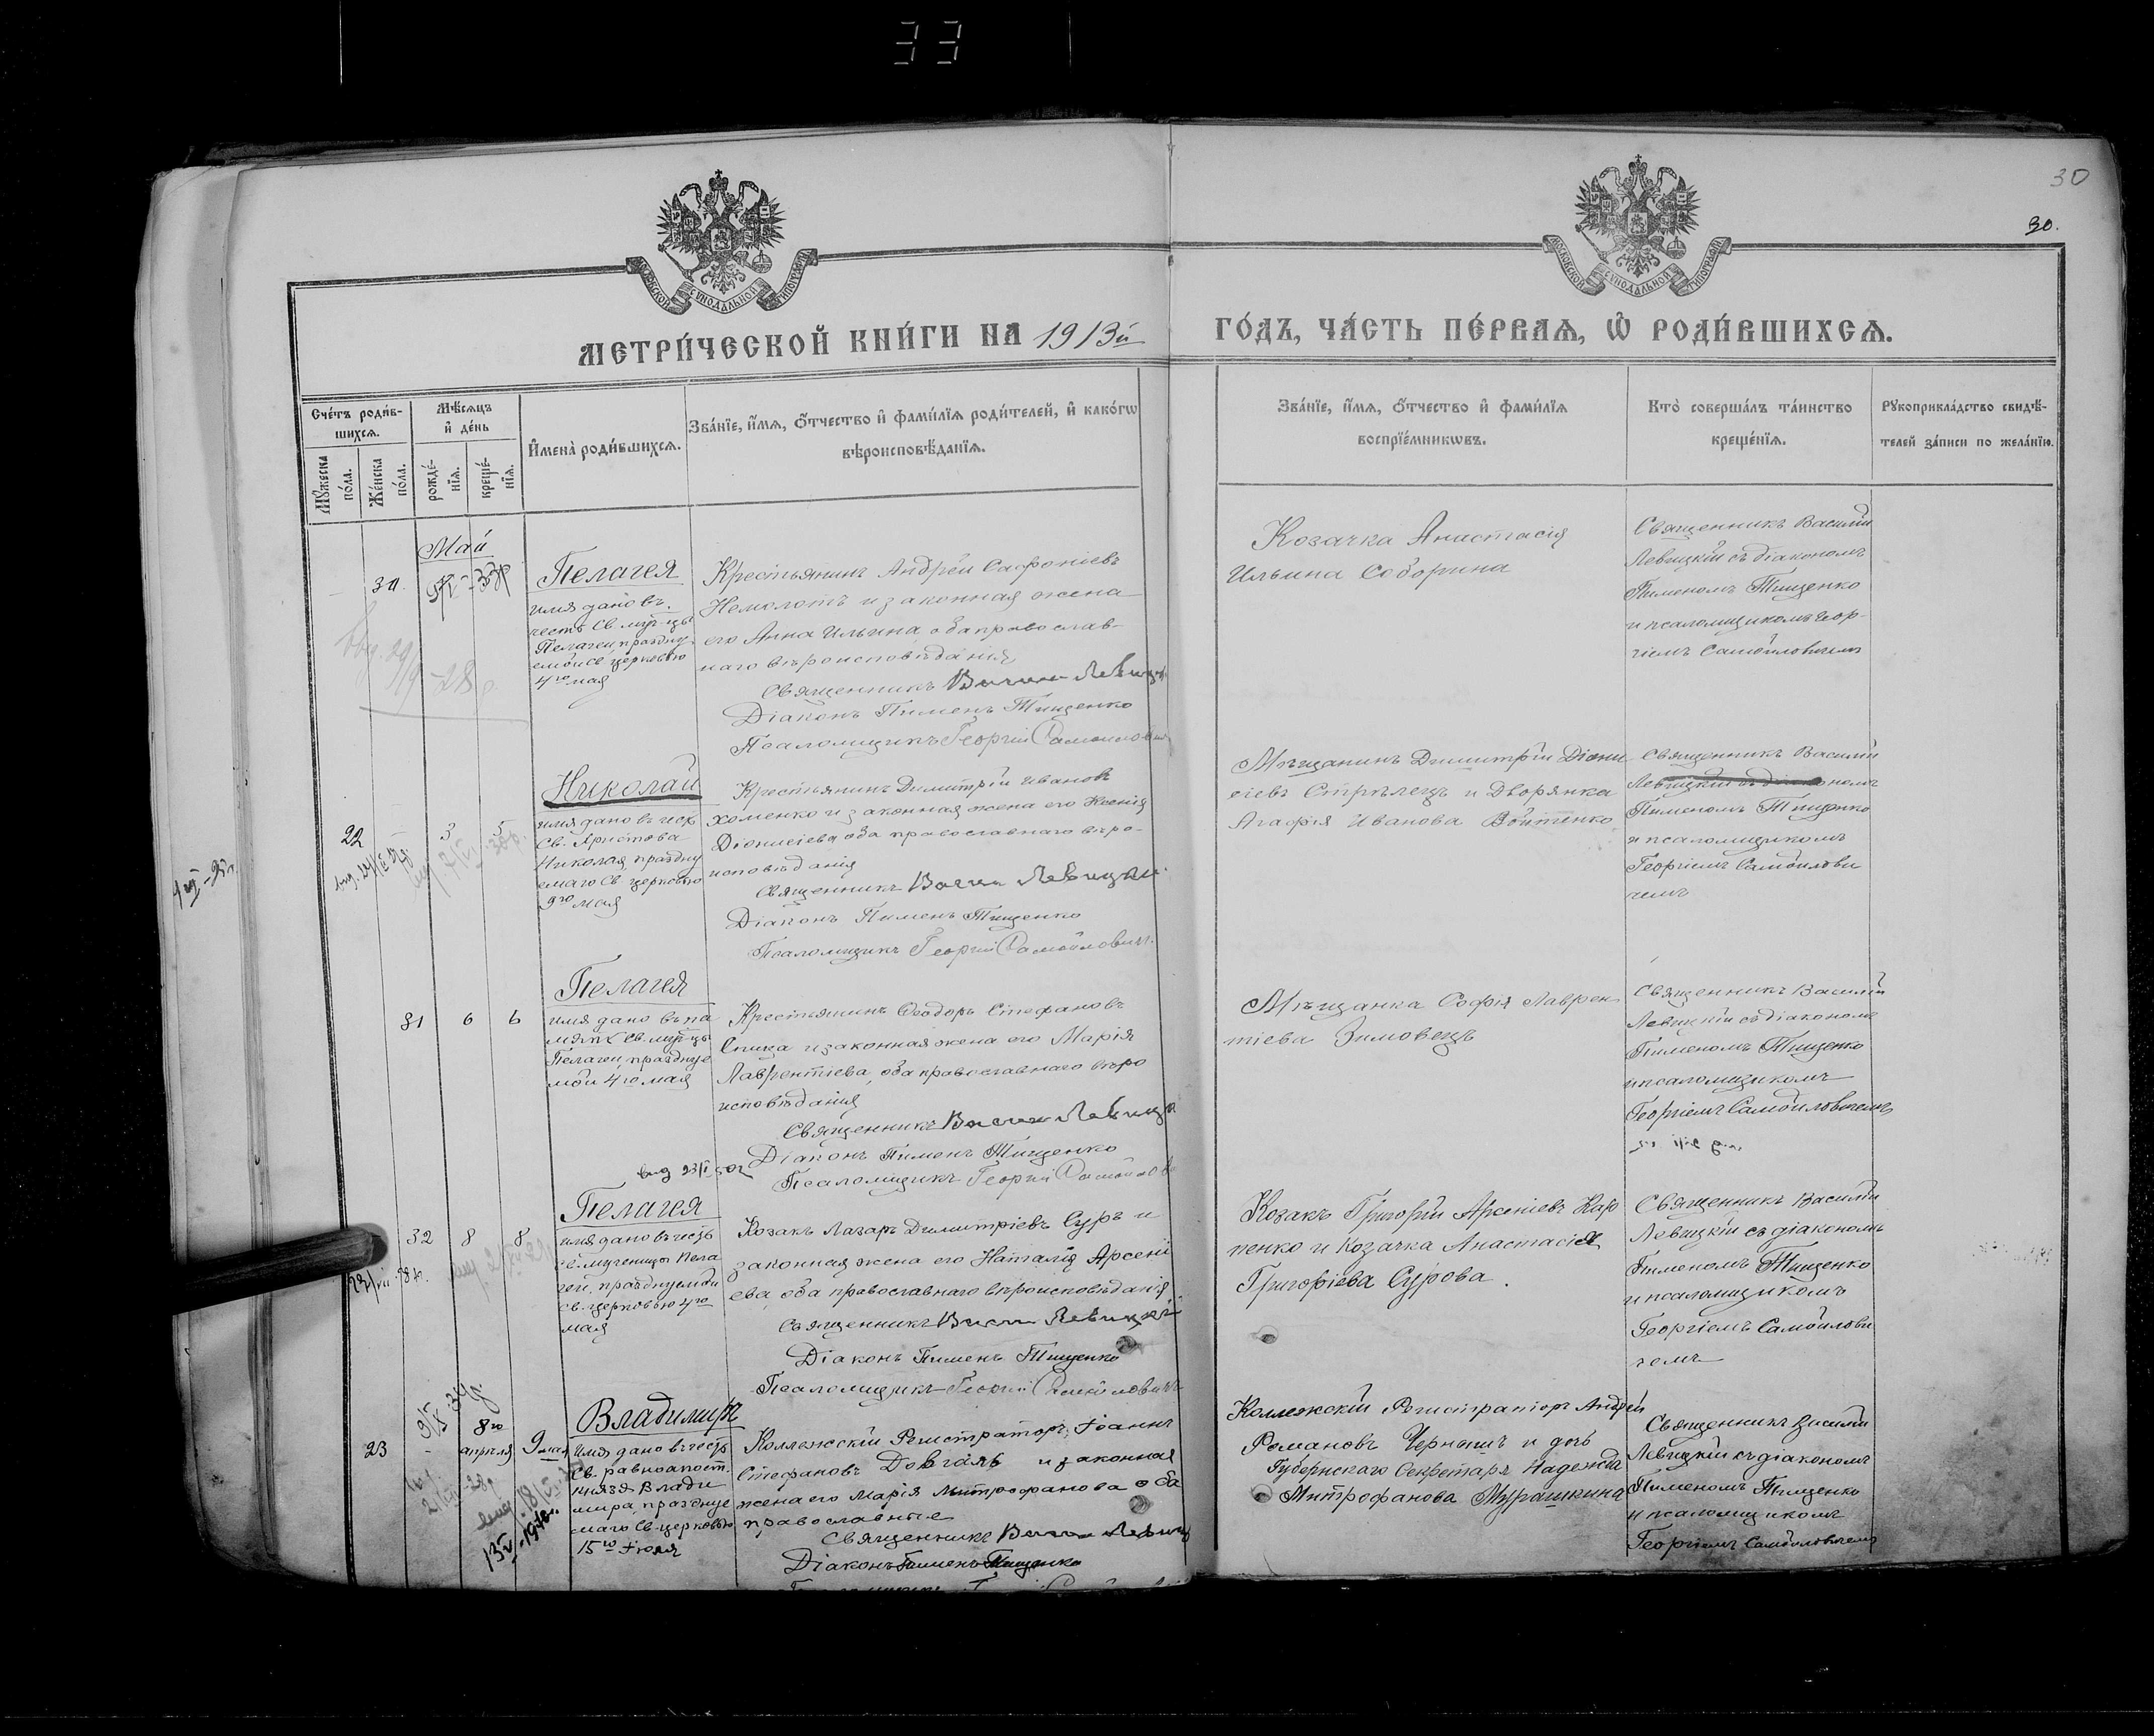 33
30
30.
МОСКОВСКОЙ СУНОДАЛЬНОЙ ТИПОГРАФІИ
МОСКОВСКОЙ СУНОДАЛЬНОЙ ТИПОГРАФІИ
МЕТРИ́ЧЕСКОЙ КНИ́ГИ НА 1913й
ГО́ДЪ, ЧА́СТЬ ПЕ́РВАѦ, Ѡ҆ РОДИ́ВШИХСѦ.
Сче́тъ роди́в-
шихсѧ.
Мꙋжеска
по́ла.
Же́нска
по́ла.
Мѣ́сѧцъ
и҆ де́нь
рожде́-
нїѧ.
креще́-
нїѧ.
И҆мена̀ роди́вшихсѧ.
Зва́нїе, и҆́мѧ, ѻ҆́тчество и҆ фами́лїѧ роди́телей, и҆ како́гѡ
вѣроисповѣ́данїѧ.
Зва́нїе, и҆́мѧ, ѻ҆́тчество и҆ фами́лїѧ
воспрїе́мникѡвъ.
Кто̀ соверша́лъ та́инство
креще́нїѧ.
Рꙋкоприкла́дство свидѣ́-
телей за́писи по жела́нїю.
Май
Пелагея
имя дано въ
честь Св. муч-цы
Пелагеи, праздну-
емой св. церковью
4го мая
Крестьянинъ Андрей Сафоніевъ
Немолотъ и законная жена
его Анна Ильина, оба православ-
наго вѣроисповѣданія
Священникъ Левицкій
Діаконъ Пименъ Тищенко
Псаломщикъ Георгій Самойлович
Козачка Анастасія
Ильина Соборина
Священникъ Василій
Левицкій съ діакономъ
Пименомъ Тищенко
и псаломщикомъ Геор-
гіемъ Самойловичемъ
22
3
5
Николай
имя дано въ чест
Св. Христова
Николая, праздну
емаго Св. церковью
9го мая
Крестьянинъ Димитрій Ивановъ
Хоменко и законная жена его Ксенія
Діонисіева, оба православнаго вѣро-
исповѣданія
Священникъ Левицкій
Діаконъ Пименъ Тищенко
Псаломщикъ Георгій Самойлович.
Мѣщанинъ Димитрій Діони
сіевъ Стрѣлецъ и Дворянка
Агафія Иванова Войтенко
Священникъ Василій
Левицкій съ діакономъ
Пименомъ Тищенко
и псаломщикомъ
Георгіемъ Самойлови
чемъ
31
6
6
Пелагея
имя дано въ па
мять Св. муч-цы
Пелагеи, празднуе
мой 4го мая
Крестьянинъ Ѳеодоръ Стефановъ
Спика и законная жена его Марія
Лаврентіева, оба православнаго вѣро
исповѣданія
Священникъ Левицкій
Діаконъ Пименъ Тищенко
Псаломщикъ Георгій Самойлов
Мѣщанка Софія Лаврен
тіева Зимовецъ
Священникъ Василій
Левицкій съ діакономъ
Пименомъ Тищенко
и псаломщикомъ
Георгіемъ Самойловичемъ
32
8
8
Пелагея
имя дано въ честь
св. мученицы Пела
геи, празднуемой
св. церковью 4го
мая
Козакъ Лазарь Димитріевъ Суръ и
законная жена его Наталія Арсені
ева, оба православнаго вѣроисповѣданія
Священникъ Левицкій
Діаконъ Пименъ Тищенко
Псаломщикъ Георгій Самойловичъ
Козакъ Григорій Арсеніевъ Кар
пенко и Козачка Анастасія
Григоріева Сурова.
Священникъ Василій
Левицкій съ діакономъ
Пименомъ Тищенко
и псаломщикомъ
Георгіемъ Самойлови
чемъ
23
8го
апрѣля
9 мая
Владимиръ
имя дано въ честь
Св. равноапост.
князя Влади
мира, празднуе
маго Св. церковью
15го Іюля
Коллежскій Регистраторъ Іоаннъ
Стефановъ Довгаль и законная
жена его Марія Митрофанова оба
православные
Священникъ Левицкій
Діаконъ Пименъ Тищенко
Коллежскій Регистраторъ Андрей
Романовъ Чернышъ и дочь
Губернскаго Секретаря Надежда
Митрофанова Мурашкина
Священникъ Василій
Левицкій съ діакономъ
Пименомъ Тищенко
и псаломщикомъ
Георгіемъ Самойловичемъ